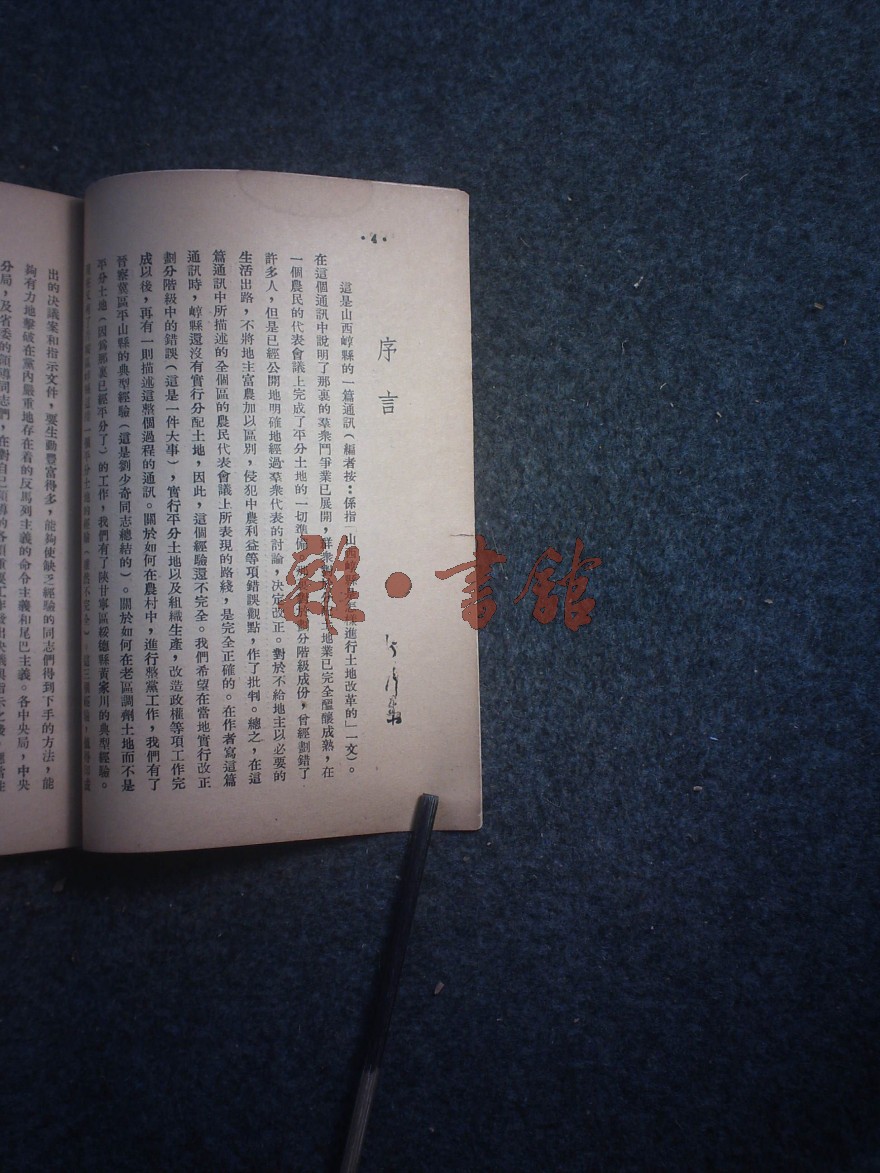 ·1·
序言
這是山西崞縣的一篇通訊(編者按：係指「山西崞縣是怎樣進行土地改革的」一文)。
在這個通訊中說明了那裏的羣衆鬥爭業已展開，羣衆 地業已完全醞釀成熟，在
一個農民的代表會議上完成了平分土地的一切準備 劃分階級成份，曾經劃錯了
許多人，但是已經公開地明確地經過羣衆代表的討論，決定改正。對於不給地主以必要的
生活出路，不將地主富農加以區別，侵犯中農利益等項錯誤觀點，作了批判。總之，在這
篇通訊中所描述的全個區的農民代表會議上所表現的路綫，是完全正確的。在作者寫這篇
通訊時，崞縣還沒有實行分配土地，因此，這個經驗還不完全。我們希望在當地實行改正
劃分階級中的錯誤(這是一件大事)，實行平分土地以及組織生產，改造政權等項工作完
成以後，再有一則描述這整個過程的通訊。關於如何在農村中，進行整黨工作，我們有了
晉察冀區平山縣的典型經驗(這是劉少奇同志總結的)。關於如何在老區調劑土地而不是
平分土地(因爲那裏已經平分了)的工作，我們有了陝甘寧區綏德縣黃家川的典型經驗。
出的決議案和指示文件，要生動豐富得多，能夠使缺乏經驗的同志們得到下手的方法，能
夠有力地擊破在黨內嚴重地存在着的反馬列主義的命令主義和尾巴主義。各中央局，中央
分局，及省委的領導同志們，在對自己領導的各項重要工作發出決議與指示之後，
雜·書館